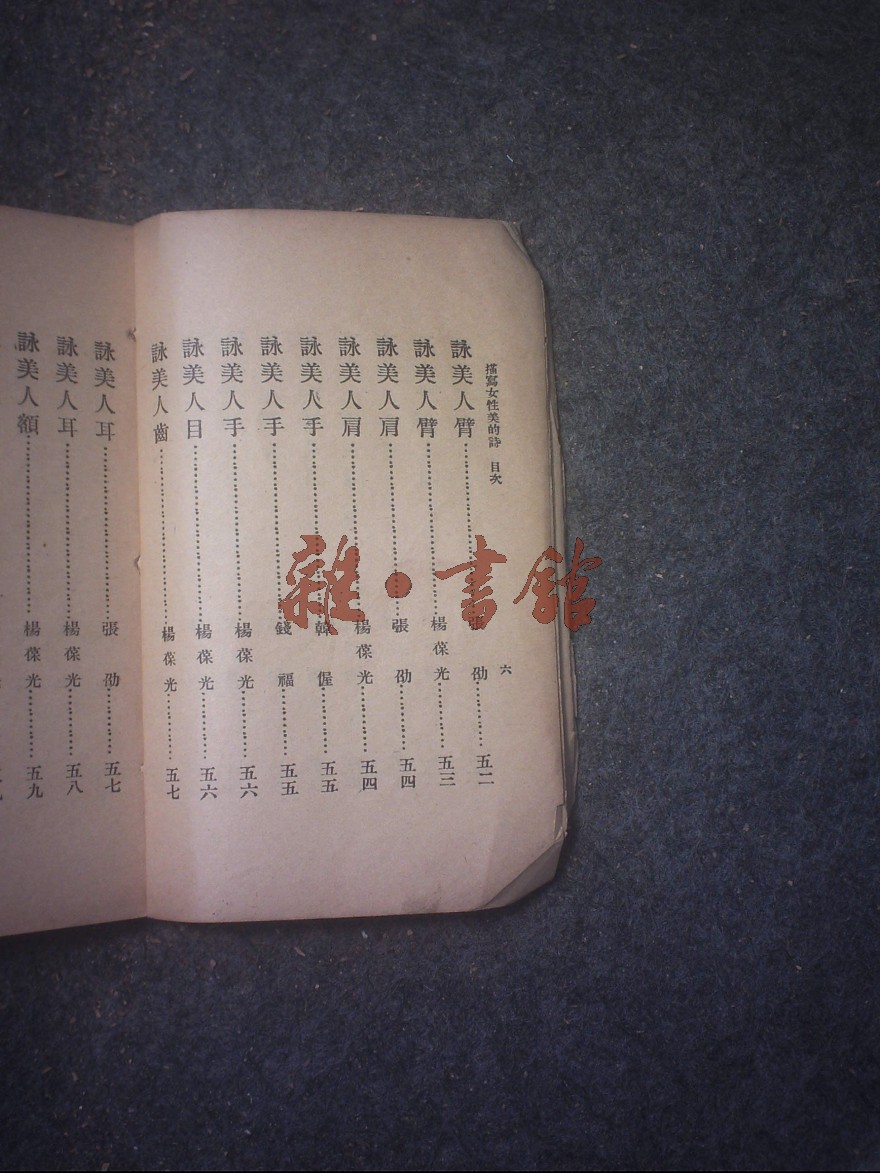 描寫女性美的詩 目次
六
詠美人臂 張劭 五二
詠美人臂 楊葆光 五三
詠美人肩 張劭 五四
詠美人肩 楊葆光 五四
詠美人手 韓偓 五五
詠美人手 錢福 五五
詠美人手 楊葆光 五六
詠美人目 楊葆光 五六
詠美人齒 楊葆光 五七
詠美人耳 張劭 五七
詠美人耳 楊葆光 五八
詠美人額 楊葆光 五九
雜·書館